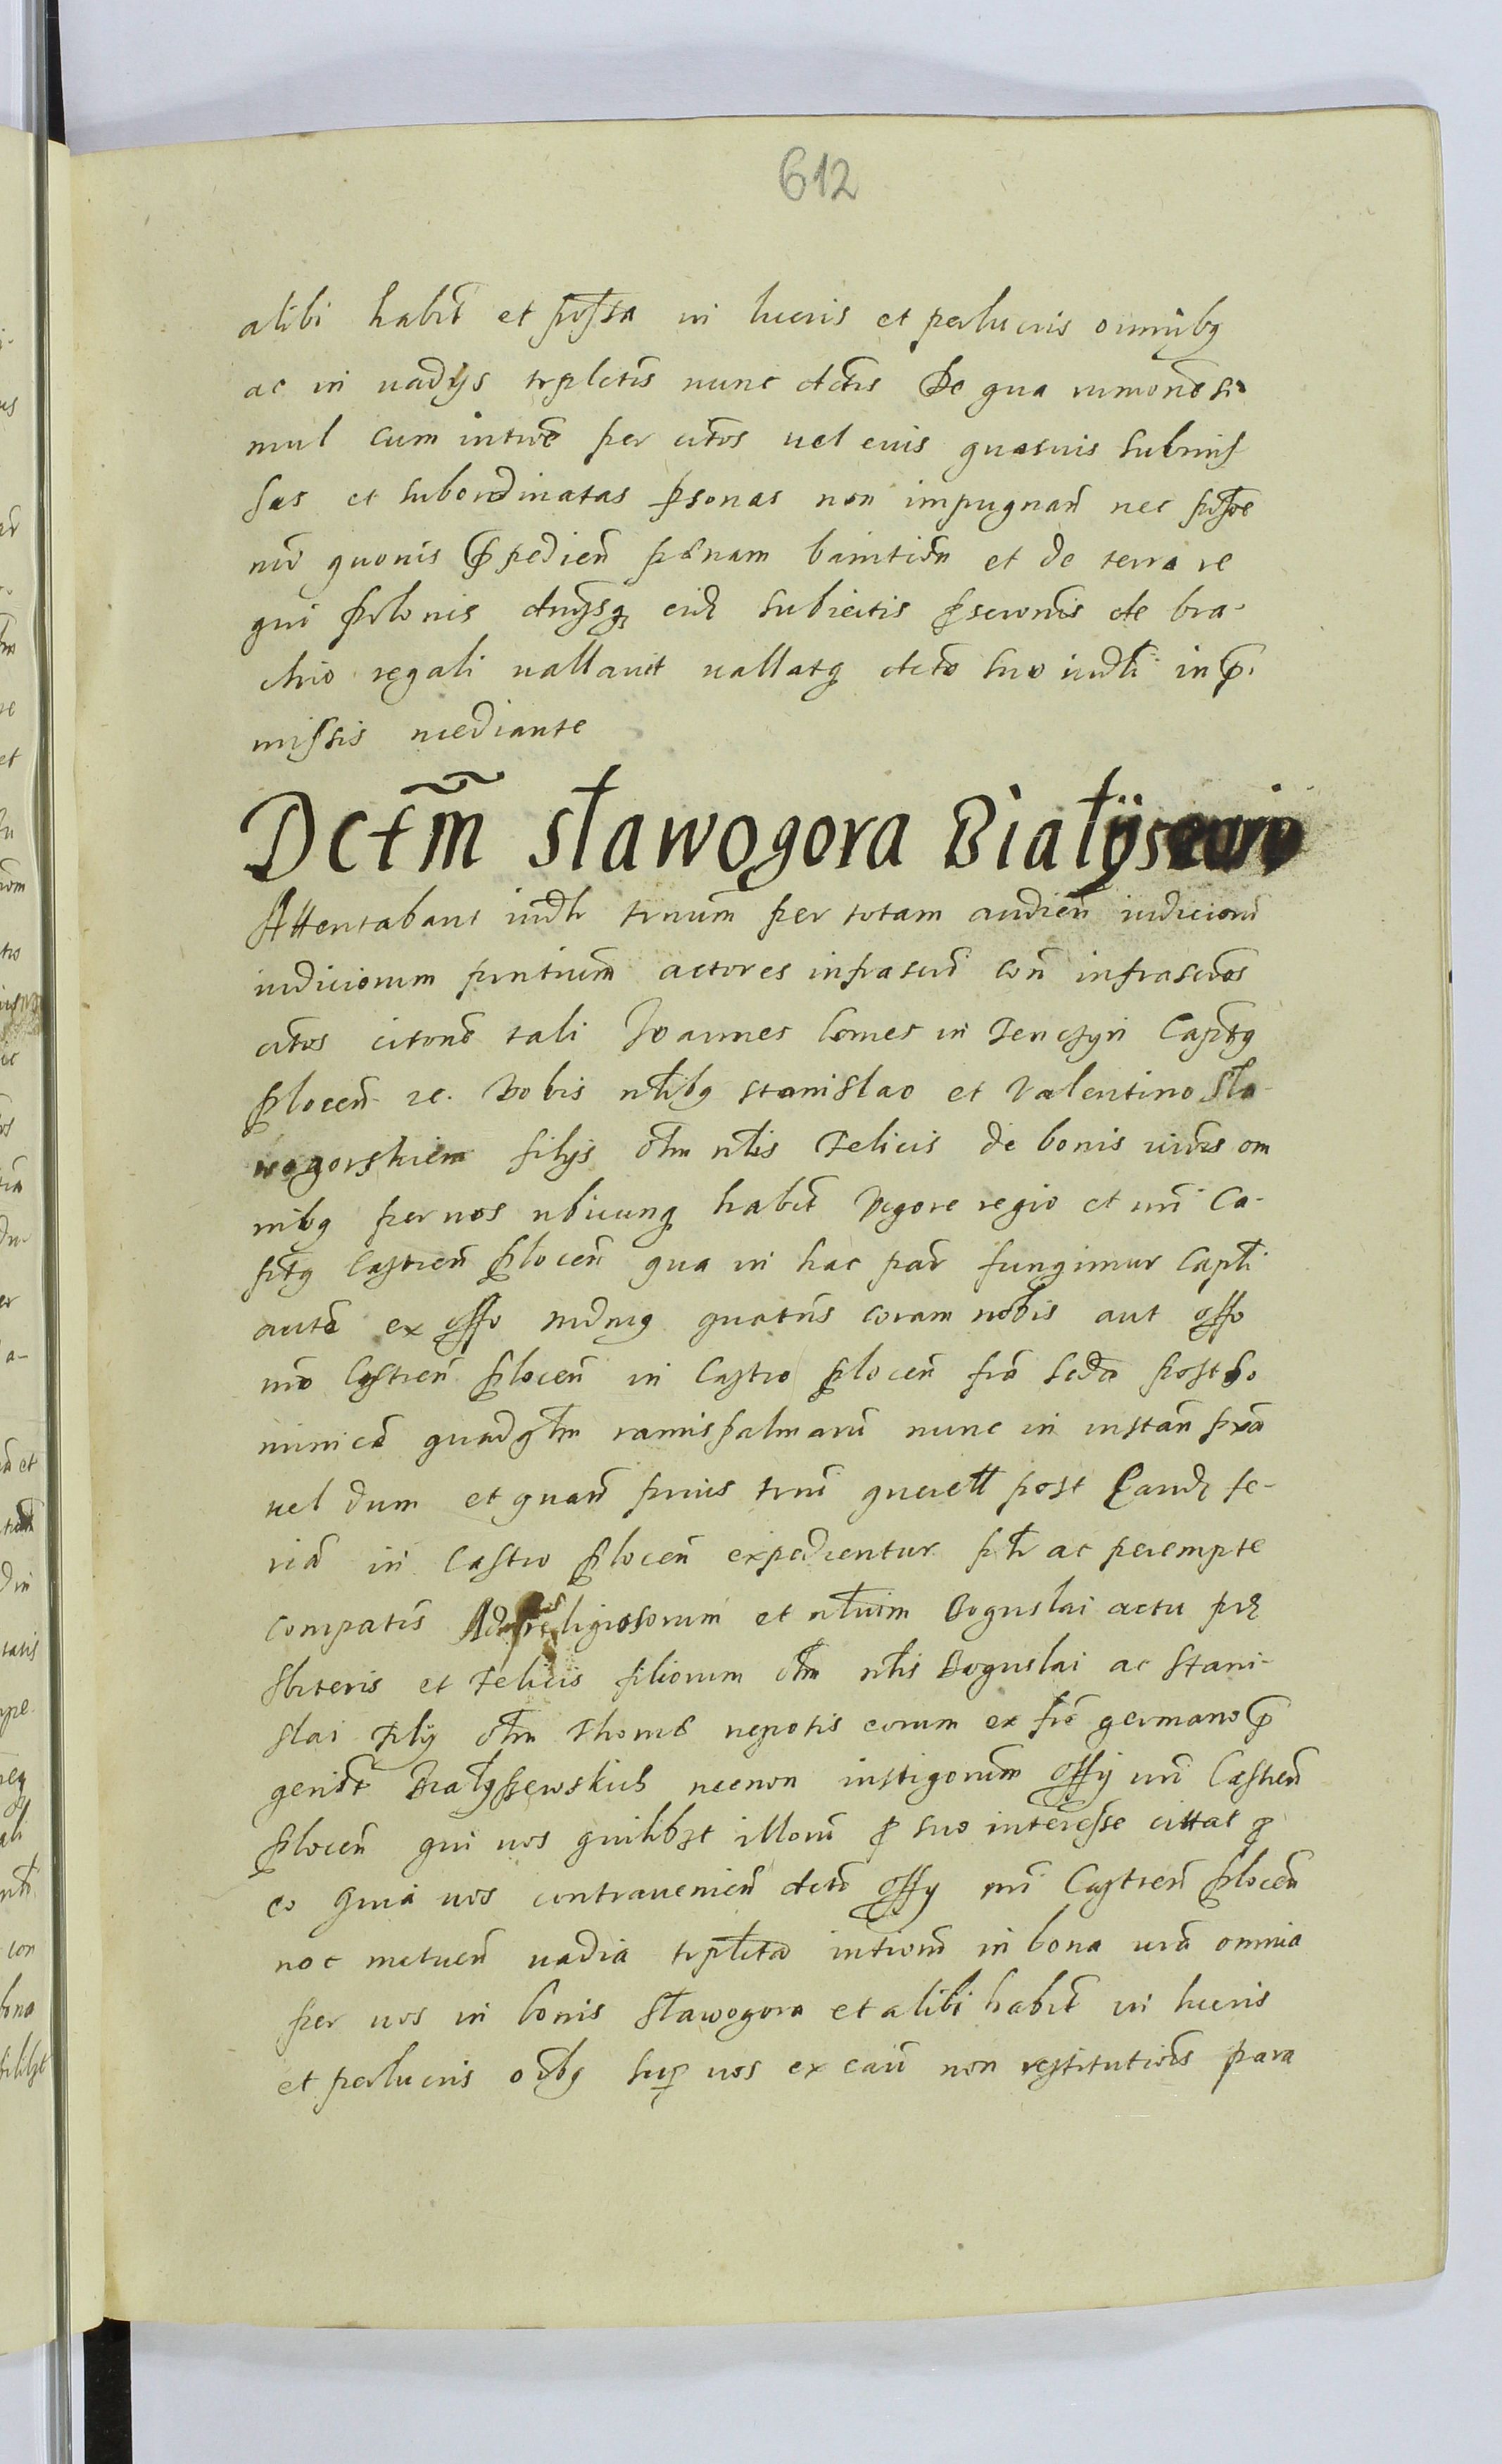 612
alibi habit et possta in lucris et perlucris omnibq
ac in vadijs trpletis nunc dctis De qua rumone si
mul cum introe per citos vel eius quasvis submis
sas et subordinatas psonas non impugnan nec
mo quovis pedien penam banition et de terra re
gni polonis dnijsq eid subiectis pscronis de bra-
chio regali vallavit vallatq dcto suo iudli in p.
missis mediante
Dctm Sławogora Białÿs
Attentabant iudlr trnum per totam audien iudiciom
iudiciorum pntium actores infrascri con infrascros
citos citone tali Joannes Comes in Tenczyn Captq
plocen ec. Vobis nlibq Stanislao et Valentino Sła-
wogorskiem filijs olm nlis Felicis de bonis viris om
nibq per vos ubicunq habit Vigore regio et nri Ca-
ptq Castren plocen qua in hac par fungimur Capli
aute ex offo mdmq quatnis coram nobis aut offo
nro Castren plocen in Castro plocen fra scda post do
minica quadglm ramispalmaru nunc in instan pxa
vel dum et quan prius trni querell post Eand fe-
ria in Castro plocen expedientur ptr ac perempte
compatis Ad religiosorum et nlium Boguslai actu prz
sbiteris et Felicis filiorum olm nlis Boguslai ac Stani-
slai filij olm Thome nepotis eorum ex fre germano p
genit Białyszewskich necnon instigorum offij nri Castren
plocen qui vos quilibzt illoru p suo interesse cittat p
eo Quia vos contravenien dcto offij nri Castren plocen
nec metuen vadia trpleta introm in bona vra omnia
per vos in bonis Sławogora et alibi habit in lucris
et perlucris oibq sup vos ex cau non restitutiois para